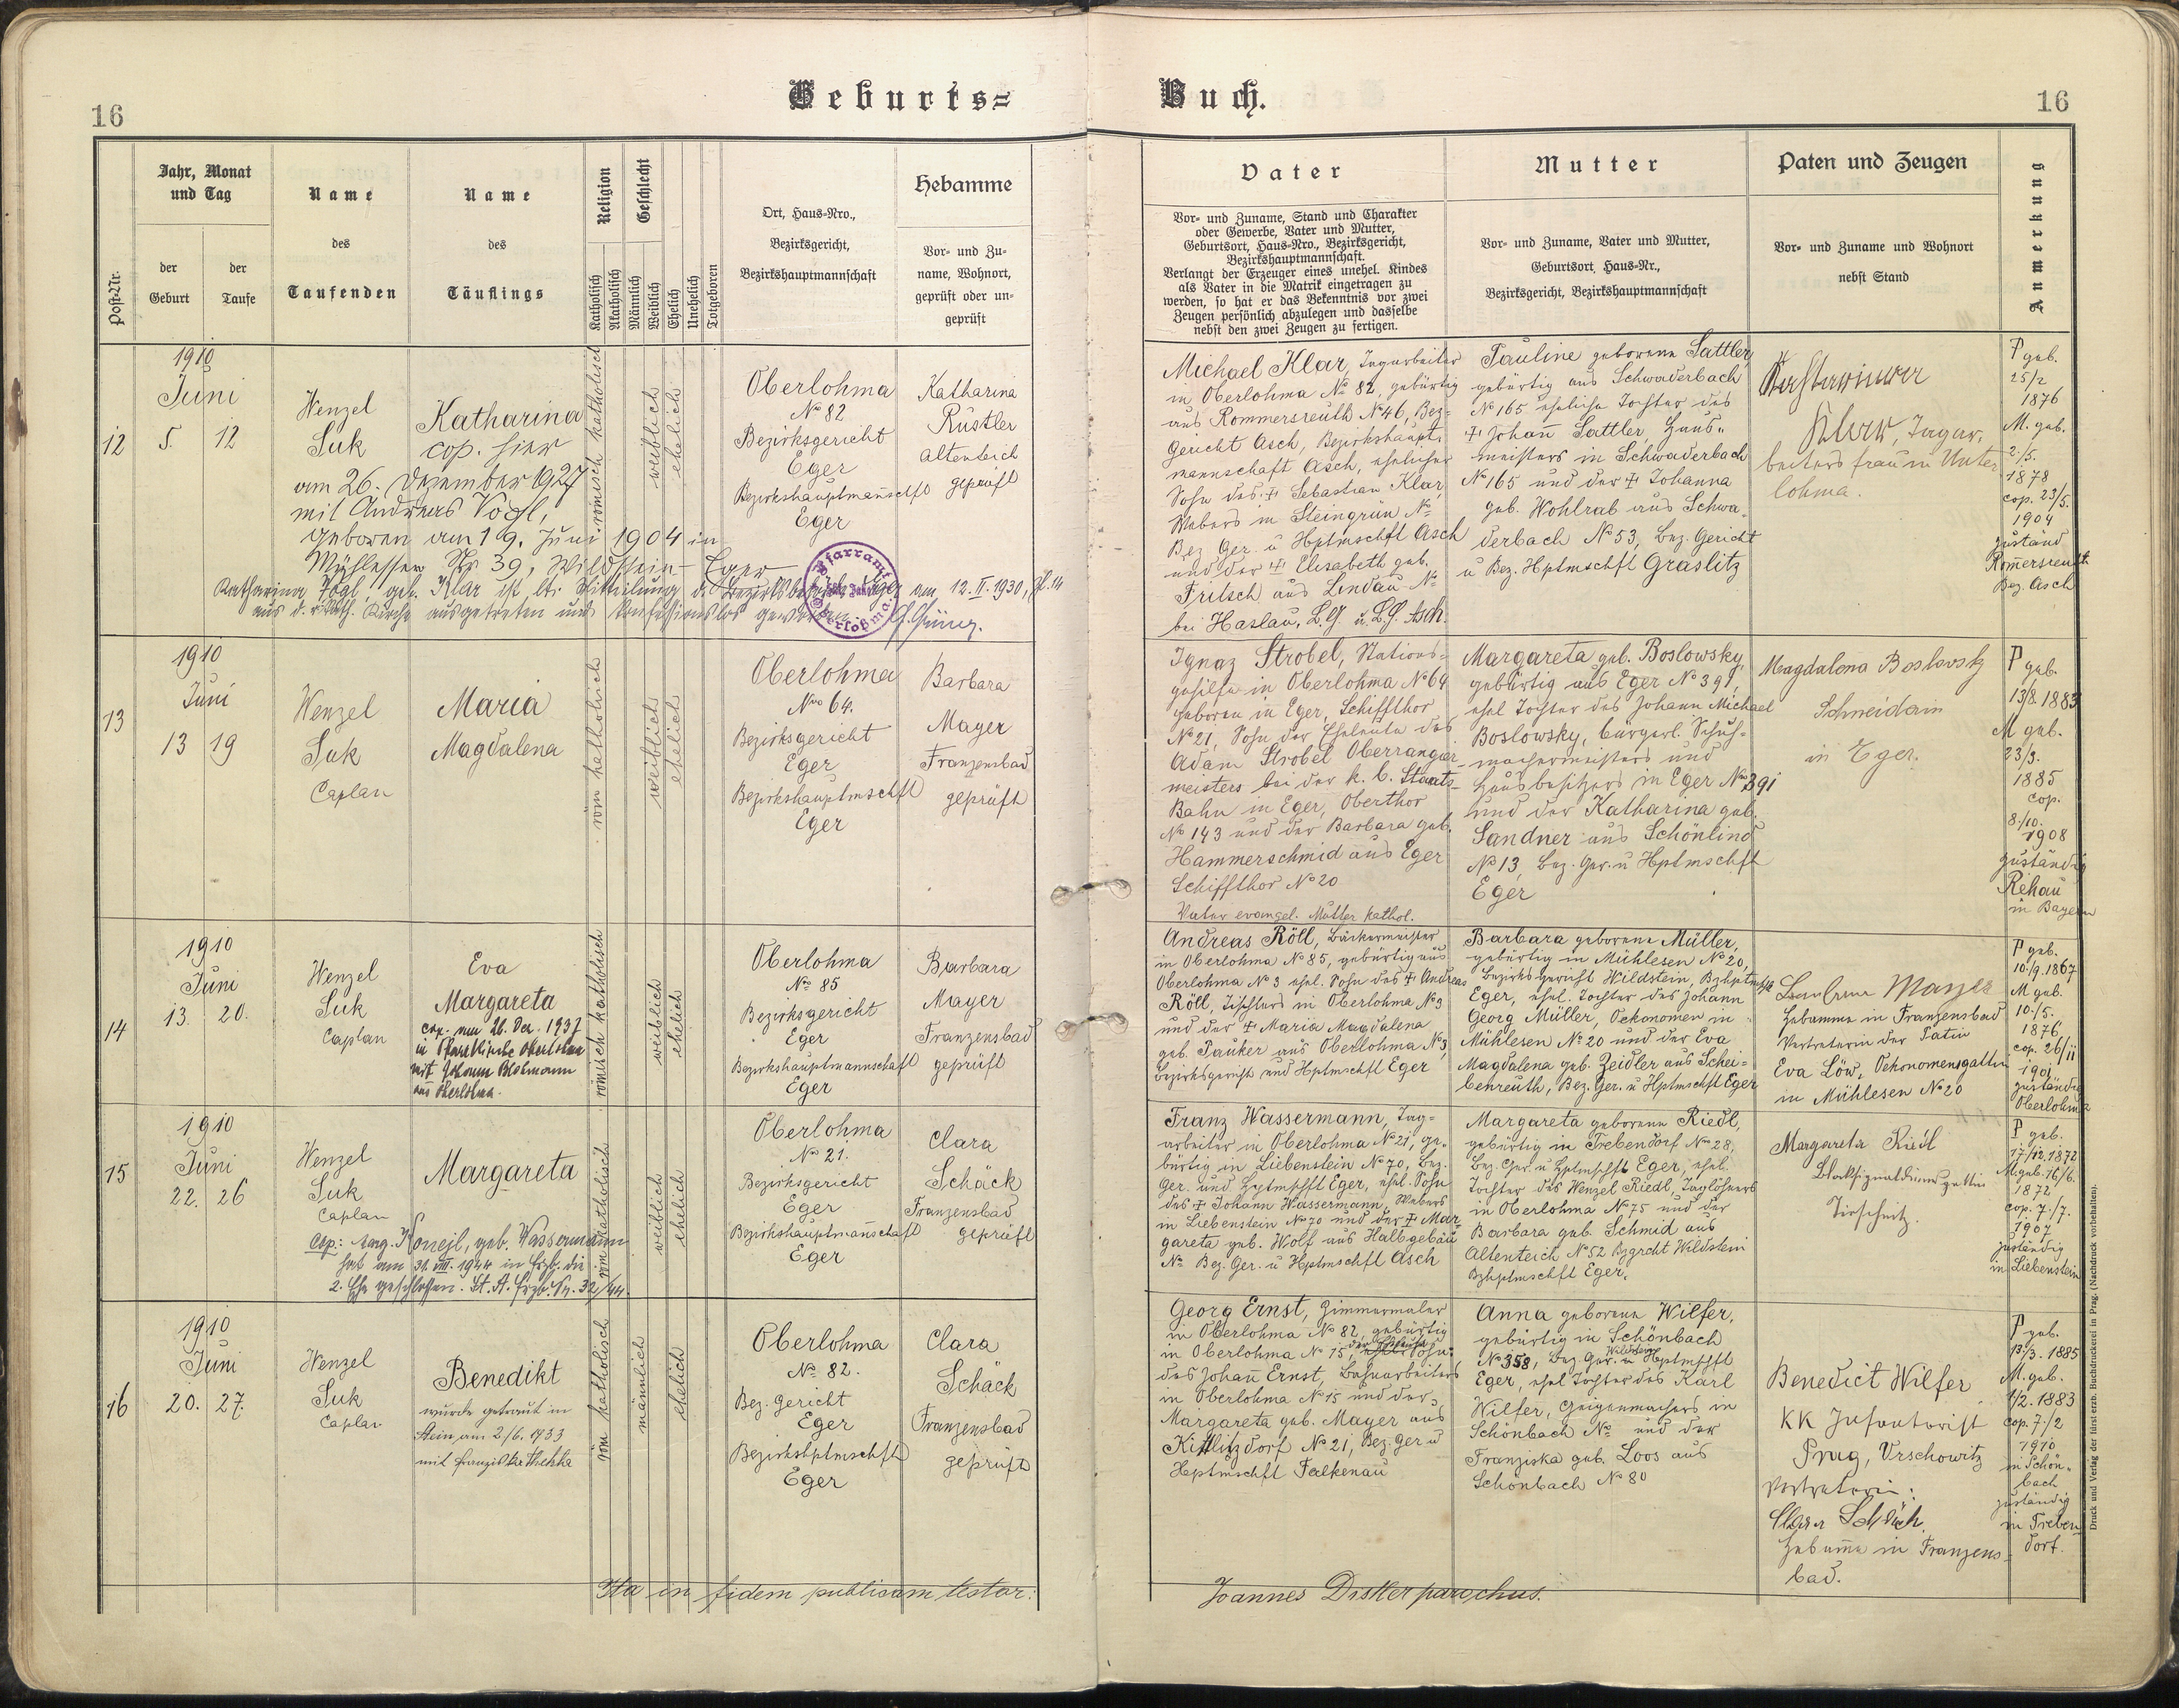 16
Geburts=
Buch.
16
Post-Nr.
Jahr, Monat
und Tag
der
Geburt
der
Taufe
Name
des
Taufenden
Name
des
Täuflings
Religion
Katholisch
Akatholisch
Geschlecht
Männlich
Weiblich
Ehelich
Unehelich
Totgeboren
Ort, Haus-Nro.,
Bezirksgericht,
Bezirkshauptmannschaft
Hebamme
Vor- und Zu-
name, Wohnort,
geprüft oder un-
geprüft
Vater
Vor- und Zuname, Stand und Charakter
oder Gewerbe, Vater und Mutter,
Geburtsort, Haus-Nro., Bezirksgericht,
Bezirkshauptmannschaft.
Verlangt der Erzeuger eines unehel. Kindes
als Vater in die Matrik eingetragen zu
werden, so hat er das Bekenntnis vor zwei
Zeugen persönlich abzulegen und dasselbe
nebst den zwei Zeugen zu fertigen.
Mutter
Vor- und Zuname, Vater und Mutter,
Geburtsort, Haus-Nr.,
Bezirksgericht, Bezirkshauptmannschaft
Paten und Zeugen
Vor- und Zuname und Wohnort
nebst Stand
Anmerkung
12
1910
Juni
5. 12
Wenzel
Suk
Katharina
cop. hier
am 26. Dezember 1927
mit Andreas Vogl,
geboren am 19. Juni 1904 in
Mühlessen Nr 39, Wildstein - Eger
Katharina Vogl, geb. Klar ist lt. Mitteilung d. Bezirksbehörde Eger am 12. II. 1930, Zl. 14
aus d. r. kath. Kirche ausgetreten und konfessionslos geworden.
römisch katholisch
weiblich
ehelich
Oberlohma
No 82
Bezirksgericht
Eger
Bezirkshauptmannschft
Eger
Katharina
Rüstler
Altenteich
geprüft
Pfarramt
Oberlohma
Michael Klar, Tagarbeiter
in Oberlohma No 82, gebürtig
aus Rommersreuth No 46, Bez=
Gericht Asch, Bezirkshaupt=
mannschaft Asch, ehelicher
Sohn des ✝ Sebastian Klar,
Webers in Steingrün No
Bez. Ger. u Hptmschft Asch
und der ✝ Elisabeth geb.
Fritsch aus Lindau No
bei Haslau, B.G. u. B.H. Asch.
Pauline geborene Sattler,
gebürtig aus Schwaderbach
No 165 eheliche Tochter des
✝ Johañ Sattler, Haus=
meisters in Schwaderbach
No 165 und der ✝ Johanna
geb. Wohlrab aus Schwa=
derbach No 53, Bez. Gericht
u Bez. Hptmschft Graslitz
Katharina
Klar, Tagar=
beitersfrau in Unter
lohma.
P geb.
25/2
1876
M. geb.
2./5.
1878
cop. 23/5.
1904
zuständ
Rommersreuth
Bez. Asch
13
1910
Juni
13 19
Wenzel
Suk
Caplan
Maria
Magdalena
röm katholisch
weiblich
ehelich
Oberlohma
No 64.
Bezirksgericht
Eger
Bezirkshauptmschft
Eger
Barbara
Mayer
Franzensbad
geprüft
Ignaz Strobel, Stations=
gehilfe in Oberlohma No 64
geboren in Eger, Schiffthor
No 21, Sohn der Eheleute des
Adam Strobel Oberrangier=
meisters bei der k. b. Staats=
Bahn in Eger, Oberthor
No 143 und der Barbara geb.
Hammerschmid aus Eger
Schiffthor No 20
Vater evangel. Mutter kathol.
Margareta geb. Boslowsky,
gebürtig aus Eger No 391,
ehel Tochter des Johann Michael
Boslowsky, bürgerl. Schuh=
machermeisters und
Hausbesitzers in Eger No 391
und der Katharina geb.
Sandner aus Schönlind
No 13, Bez. Ger. u Hptmschft
Eger
Magdalena Boslovsky
Schneiderin
in Eger.
P geb.
13/8. 1883
M geb.
23/3.
1885
cop.
8./10.
1908
zuständig
Rehau
in Bayern
14
1910
Juni
13. 20.
Wenzel
Suk
Caplan
Eva
Margareta
cop. am 26. Dez. 1937
in Pfarrkirche Oberlohma
mit Johann
aus Oberlohma.
römisch katholisch
weiblich
ehelich
Oberlohma
No 85
Bezirksgericht
Eger
Bezirkshauptmannschaft
Eger
Barbara
Mayer
Franzensbad
geprüft
Andreas Röll, Bäckermeister
in Oberlohma No 85, gebürtig aus
Oberlohma No 3 ehel. Sohn des ✝ Andreas
Röll, Tischlers in Oberlohma No 3
und der ✝ Maria Magdalena
geb. Pauker aus Oberlohma No 3,
Bezirksgericht und Hptmschft Eger
Barbara geborene Müller,
gebürtig in Mühlesen No 20,
Bezirksgericht Wildstein, Bzhptmschft
Eger, ehel. Tochter des Johann
Georg Müller, Oekonomen in
Mühlesen No 20 und der Eva
Magdalena geb. Zeidler aus Schei=
benreuth, Bez. Ger. u Hptmschft Eger
Barbara Mayer
Hebamme in Franzensbad
Vertreterin der Patin
Eva Löw, Oekonomensgattin
in Mühlesen No 20
P geb.
10./9. 1867
M geb.
10./5.
1876
cop. 26/11
1901
zuständig
Oberlohma
15
1910
Juni
22. 26
Wenzel
Suk
Caplan
Margareta
Cop: Marg. Konejl, geb. Wassermann
hat am 31. VIII. 1944 in die
2. Ehe geschlossen. St. A. Nr. 32/44.
röm katholisch
weiblich
ehelich
Oberlohma
No 21.
Bezirksgericht
Eger
Bezirkshauptmañschaft
Eger
Clara
Schäck
Franzensbad
geprüft
Franz Wassermann, Tag=
arbeiter in Oberlohma No 21, ge=
bürtig in Liebenstein No 70, Bez.
Ger. und Hptmschft Eger, ehel. Sohn
des ✝ Johann Wassermann, Webers
in Liebenstein No 70 und der ✝ Mar=
gareta geb. Wolf aus Halbgebäu
No Bez. Ger. u Hptmschft Asch
Margareta geborene Riedl,
gebürtig in Trebendorf No 28,
Bez. Ger. u Hptmschft Eger, ehel.
Tochter des Wenzel Riedl, Taglöhners
in Oberlohma No 75 und der
Barbara geb. Schmid aus
Altenteich No 52 Bzgrcht Wildstein
Bzhptmschft Eger.
Margareta Riedl
Blocksignaldienersgattin
Tirschnitz.
P geb.
17/12. 1872
M geb. 16/6.
1872
cop. 7./7.
1907
zuständig
in Liebenstein
16
1910
Juni
20. 27.
Wenzel
Suk
Caplan
Benedikt
wurde getraut in
Stein am 2/6. 1933
mit Franziska
röm katholisch
männlich
ehelich
Oberlohma
No 82.
Bez. Gericht
Eger
Bezirkshptmschft
Eger
Clara
Schäck
Franzensbad
geprüft
Georg Ernst, Zimmermaler
in Oberlohma No 82, gebürtig
in Oberlohma No 15, der Eheleute Sohn
des Johañ Ernst, Bahnarbeiters
in Oberlohma No 15 und der
Margareta geb. Mayer aus
Kittlitzdorf No 21, Bez. Ger u
Hptmschft Falkenau
Anna geborene Wilfer,
gebürtig in Schönbach
No 358, Bez Ger. Wildstein u Hptmschft
Eger, ehel Tochter des Karl
Wilfer, Geigenmachers in
Schönbach No und der
Franziska geb. Loos aus
Schönbach No 80
Benedict Wilfer
KK Infanterist
Prag, Vrschowitz
Vertreterin:
Clara Schäck
Hebamme in Franzens=
bad.
P geb.
13./3. 1885
M. geb.
1/2. 1883
cop. 7./2
1910
in Schön=
bach
zuständig
in Treben=
dorf.
Ita in fidem publicam testor:
Joannes Distler parochus.
Druck und Verlag der fürst erzb. Buchdruckerei in Prag. (Nachdruck vorbehalten).